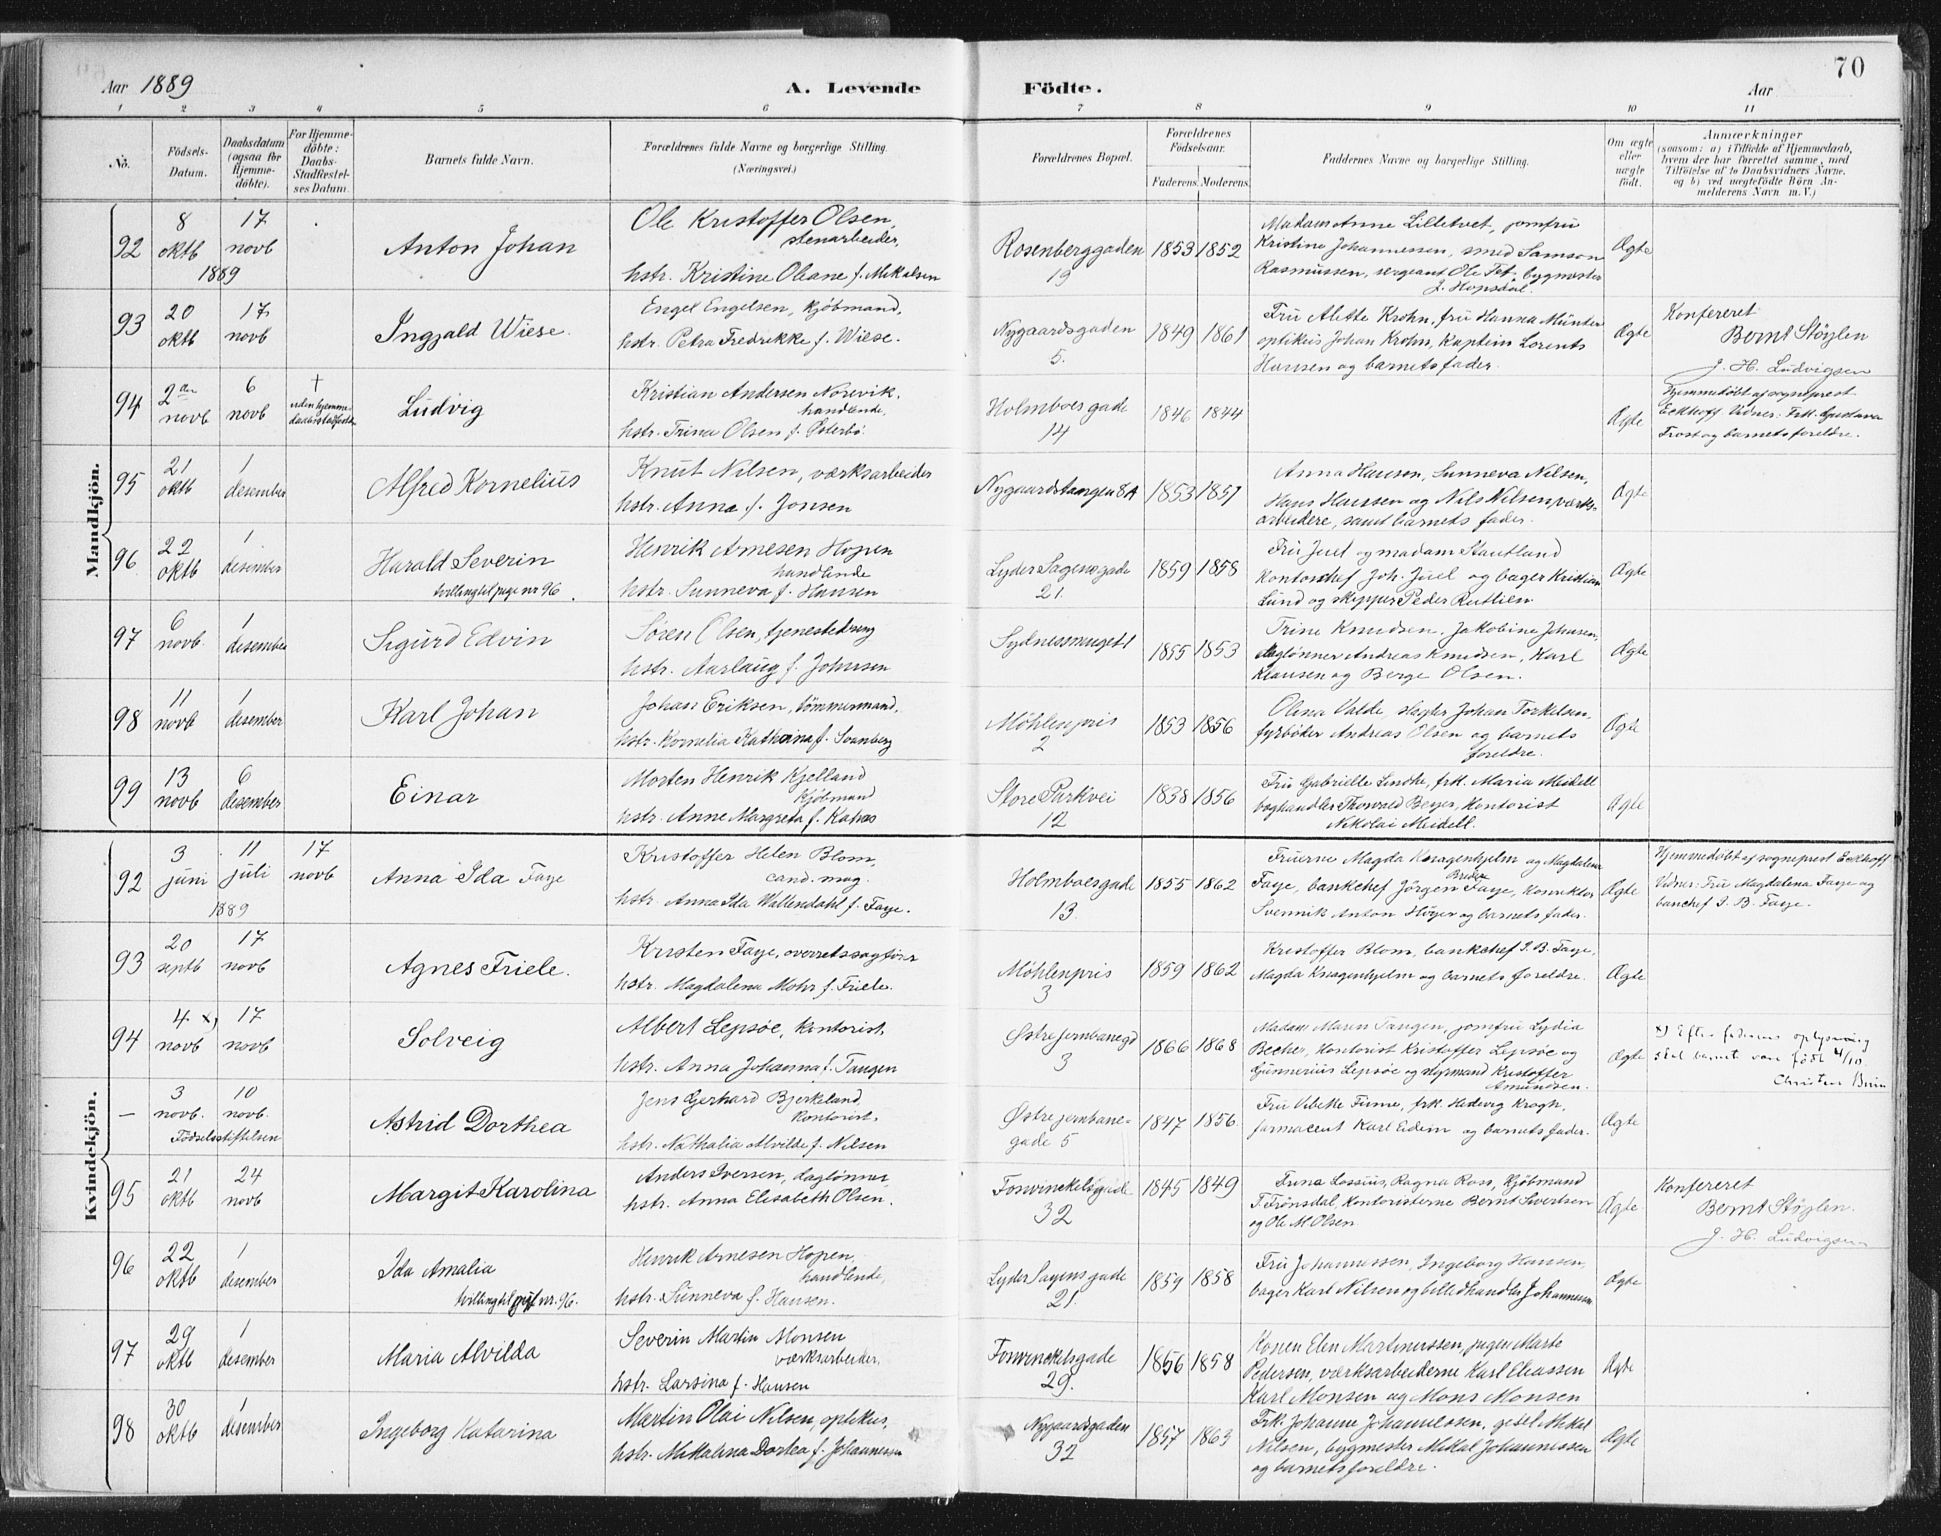 Aar 1889
A. Levende
Födte.
Aar
70
1 2 3 4 5 6 7 8 9 10 11
No.
Födsels-
Datum.
Daabsdatum
(ogsaa for
Hjemme-
döbte).
For Hjemme-
döbte:
Daabs-
Stadfæstel-
ses Datum.
Barnets fulde Navn.
Forældrenes fulde Navne og borgerlige Stilling.
(Næringsvei.)
Forældrenes Bopæl.
Forældrenes
Födselsaar.
Faderens.
Moderens.
Faddernes Navne og borgerlige Stilling.
Om ægte
eller
uægte
födt.
Anmærkninger
(saasom: a) i Tilfælde af Hjemmedaab,
hvem der har forrettet samme, med
Tilföielse af to Daabsvidners Navne,
og b) ved uægtefödte Börn An-
melderens Navn m. V.)
Mandkjön.
92
8
oktb
1889
17
novb
Anton Johan
Ole Kristoffer Olsen,
stenarbeider,
hstr. Kristine Oleane f. Mikalsen
Rosenberggaden
19
1853 1852
Madam Anne Lilletvet, jomfru
Kristine Johannessen, smed Samson
Rasmussen, sergeant Ole Tet, bygmester
J. Hopsdal.
Ægte
93
20
oktb
17
novb
Ingjald Wiese.
Engel Engelsen, kjöbmand,
hstr. Petra Fredrikke f. Wiese.
Nygaardsgaden
5.
1849 1861
Fru Alette Krohn, fru Hanna Münter
optikus Johan Krohn, kaptein Lorents
Hansen og barnets fader.
Ægte
Konfereret
Bernt Støylen
J. H. Ludvigsen
94
2den
novb
6
novb
†
uden hjemme-
daabsstadfæstelse
Ludvig
Kristian Andersen Norevik,
handlende,
hstr. Trina Olsen f. Österbö.
Holmboes gade
14
1846 1844
Ægte
Hjemmedöbt af sogneprest
Eckhoff Vidner: Frk. Gustava
Trost og barnets foreldre.
95
21
oktb
1
desember
Alfred Kornelius
Knut Nilsen, værksarbeider
hstr. Anna f. Jonsen
Nygaardstangen 8A
1853 1857
Anna Hansen, Sunneva Nilsen,
Hans Hanssen og Nils Nilsen, værks-
arbeidere, samt barnets fader.
Ægte
96
22
oktb
1
desember
Harald Severin
tvilling til pige nr 96.
Henrik Arnesen Hopen
handlende
hstr. Sunneva f. Hansen
Lyder Sagensgade
21.
1859 1858
Fru Juel og madam Stautland
kontorchef Joh. Juel og bager Kristian
Lund og skipper Peder Rutlien.
Ægte
97
6
novb.
1
desember
Sigurd Edvin
Søren Olsen, tjenestedreng
hstr. Aarlaug f. Johnsen
Sydnessmuget 1
1855 1853
Trine Knudsen, Jakobine Johnsen,
daglønner Andreas Knudsen, Karl
Klausen og Berge Olsen.
Ægte
98
11
novb
1
desember
Karl Johan
Johan Eriksen, tömmermand,
hstr. Kornelia Katharina f. Svanberg
Möhlenpris
2
1853 1856
Olena Valde, slagter Johan Torkelsen,
fyrböder Andreas Olsen og barnets
foreldre.
Ægte
99
13
novb
6
desember
Einar
Morten Henrik Kjelland
Kjöbmand
hstr. Anne Margreta f. Kahrs
Store Parkvei
12
1838 1856
Fru Gabrielle Lindtke, frk. Maria Meidell
boghandler Thorvald Beyer, kontorist
Nikolai Meidell.
Ægte
Kvindekjön.
92
3
juni
1889
11
juli
17
novb
Anna Ida Faye
Kristoffer Helen Blom,
cand. mag.
hstr. Anna Ida Wallendahl f. Faye.
Holmboesgade
13.
1855 1862
Fruerne Magda Knagenhjelm og Magdalena
Faye, bankchef Jörgen Breder Faye, konrektor
Svennik Anton Höyer og barnets fader.
Ægte
Hjemmedöbt af sogneprest Eckhoff
Vidner: Fru Magdalena Faye og
banchef J. B. Faye.
93
20
septb
17
novb
Agnes Friele.
Kristen Faye, overretssagförer
hstr. Magdalena Mohr f. Friele.
Möhlenpris
3
1859 1862
Kristoffer Blom, bankchef J. B. Faye,
Magda Knagenhjelm og barnets foreldre.
Ægte
94
4 x)
novb
17
novb
Solveig
Albert Lepsöe, kontorist,
hstr. Anna Johanna f. Tangen
Østre jernbanegd
3
1866 1868
Madam Maren Tangen, jomfru Lydia
Becher, kontorist Kristoffer Lepsöe og
Gunnerius Lepsöe og styrmand Kristoffer
Amundsen.
Ægte
x) Efter faderens oplysning
skal barnet være födt 4/10
Christen Brun
–
3
novb.
Födselsstiftelsen
10
novb.
Astrid Dorthea
Jens Gerhard Bjerkelund,
kontorist,
hstr. Nathalia Alvilde f. Nilsen
Østre jernbane-
gade 5
1847 1856
Fru Vibekke Finne, frk. Hedevig Krogh,
farmaceut Karl Eidem og barnets fader.
Ægte
95
21
oktb
24
novb
Margit Karolina
Anders Iversen, daglönner
hstr. Anna Elisabeth Olsen.
Fosvinckelsgade
32
1845 1849
Ragna Ross, Kjöbmand
T. Frönsdal, kontoristerne Bernt Sivertsen
og Ole M. Olsen.
Ægte
Konfereret
Bernt Støylen.
J. H. Ludvigsen
96
22
oktb
1
desember
Ida Amalia
tvilling til gut nr. 96.
Henrik Arnesen Hopen,
handlende,
hstr. Sunneva f. Hansen.
Lyder Sagensgade
21.
1859 1858
Fru Johannessen, Ingeborg Hansen,
bager Karl Nilsen og billedhandler Johannessen
Ægte
97
29
oktb
1
desember
Maria Alvilda
Severin Martin Monsen
værksarbeider,
hstr. Larsina f. Hansen
Fosvinckelsgade
29.
1856 1858
Konen Elen Martinussen, pigen Marta
Pedersen, værksarbeiderne Karl Eliassen
Karl Monsen og Mons Monsen
Ægte
98
30
oktb
1
desember
Ingeborg Katarina
Martin Olai Nilsen, optikus,
hstr. Mikalina Dortea f. Johannessen
Nygaardsgaden
32
1857 1863
Frk. Johanne Johannessen, gesel Mikal
Nilsen, bygmester Mikal Johannessen
og barnets foreldre.
Ægte